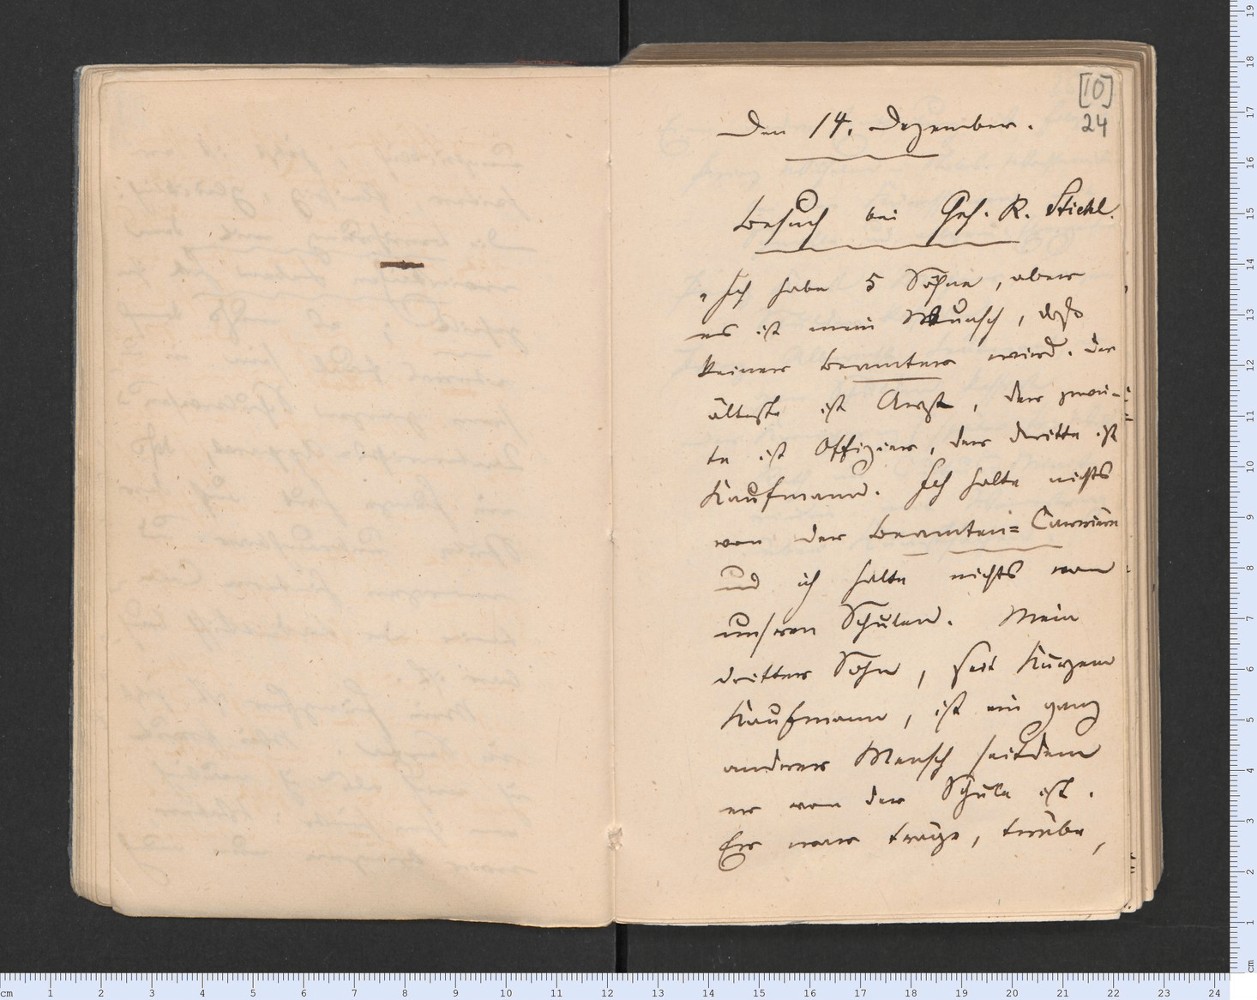 [10]
24
Den 14. Dezember.
Besuch bei Geh. R. Stiehl.
„Ich habe 5 Söhne, aber
es ist mein Wunsch, daß
keiner Beamter wird. Der
älteste ist Arzt, der zwei-
te ist Offizier, der dritte ist
Kaufmann. Ich halte nichts
von der Beamten=Carriere
und ich halte nichts von
unseren Schulen. Mein
dritter Sohn, seit Kurzem
Kaufmann, ist ein ganz
anderer Mensch seitdem
er von der Schule ist.
Er war träge, trübe,